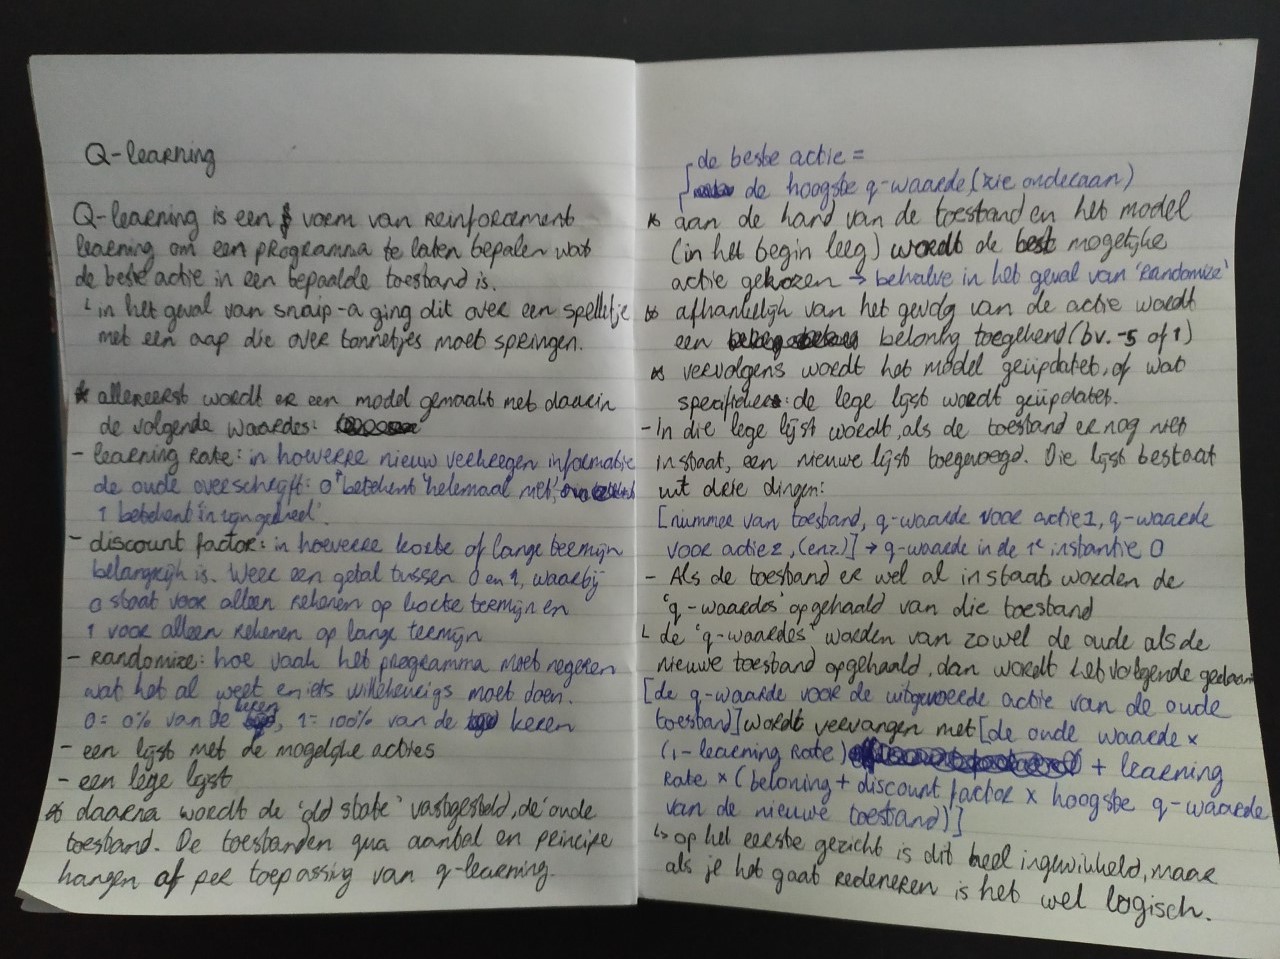 Q-learning
Q-learning is een vorm van Reinforcement
learning om een programma te laten bepalen wat
de beste actie in een bepaalde toestand is.
└ in het geval van snaip-a ging dit over een spelletje
met een aap die over tonnetjes moet springen.
* allereerst wordt er een model gemaakt met daarin
de volgende waardes:
- learning Rate: in hoverre nieuw verkregen informatie
de oude overschrijft: 0 betekent 'helemaal niet',
1 betekent 'in zijn geheel'.
- discount factor: in hoeverre korte of lange termijn
belangrijk is. Weer een getal tussen 0 en 1, waarbij
0 staat voor alleen rekenen op korte termijn en
1 voor alleen rekenen op lange termijn
- Randomize: hoe vaak het programma moet negeren
wat het al weet en iets willekeurigs moet doen.
0 = 0% van de keren, 1 = 100% van de keren
- een lijst met de mogelijke acties
- een lege lijst
* daarna wordt de 'old state' vastgesteld, de oude
toestand. De toestanden qua aantal en principe
hangen af per toepassing van q-learning.
de beste actie =
de hoogste q-waarde (zie onderaan)
* aan de hand van de toestand en het model
(in het begin leeg) wordt de best mogelijke
actie gekozen → behalve in het geval van 'Randomize'
* afhankelijk van het gevolg van de actie wordt
een beloning toegekend (bv. -5 of 1)
* vervolgens wordt het model geüpdatet, of wat
specifieker: de lege lijst wordt geüpdatet.
- In die lege lijst wordt, als de toestand er nog niet
in staat, een nieuwe lijst toegevoegd. Die lijst bestaat
uit drie dingen:
[nummer van toestand, q-waarde voor actie 1, q-waarde
voor actie 2, (enz.)] → q-waarde in de 1e instantie 0
- Als de toestand er wel al in staat worden de
'q-waardes' opgehaald van die toestand
└ de 'q-waardes' worden van zowel de oude als de
nieuwe toestand opgehaald, dan wordt het volgende gedaan
[de q-waarde voor de uitgevoerde actie van de oude
toestand] wordt vervangen met [de oude waarde ×
(1 - learning Rate) + learning
Rate × (beloning + discount factor × hoogste q-waarde
van de nieuwe toestand)]
↳ op het eerste gezicht is dit heel ingewikkeld, maar
als je het gaat redeneren is het wel logisch.